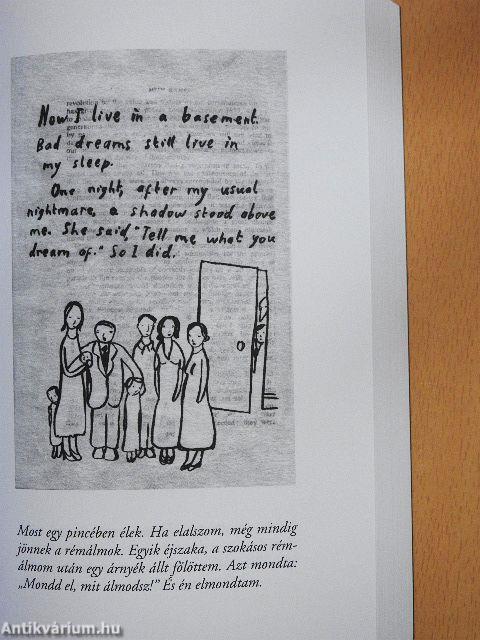 Now I live in a basement.
Bad dreams still live in
my sleep.
One night, after my usual
nightmare, a shadow stood above
me. She said "Tell me what you
dream of." So I did.
Most egy pincében élek. Ha elalszom, még mindig
jönnek a rémálmok. Egyik éjszaka, a szokásos rém-
álmom után egy árnyék állt fölöttem. Azt mondta:
„Mondd el, mit álmodsz!” És én elmondtam.
Antikvárium.hu